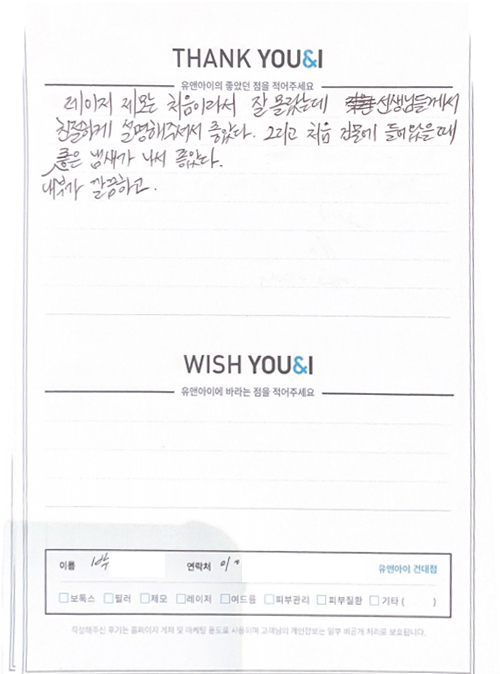 THANK YOU&I
유앤아이의 좋았던 점을 적어주세요
레이저 제모는 처음이라서 잘 몰랐는데 선생님들께서
친절하게 설명해주셔서 좋았다. 그리고 처음 건물에 들어왔을 때
좋은 냄새가 나서 좋았다.
내부가 깔끔하고.
WISH YOU&I
유앤아이에 바라는 점을 적어주세요
이름 연락처 유앤아이 건대점
보톡스 필러 제모 레이저 여드름 피부관리 피부질환 기타 ( )
작성해주신 후기는 홈페이지 게재 및 마케팅 용도로 사용되며 고객님의 개인정보는 일부 비공개 처리로 보호됩니다.